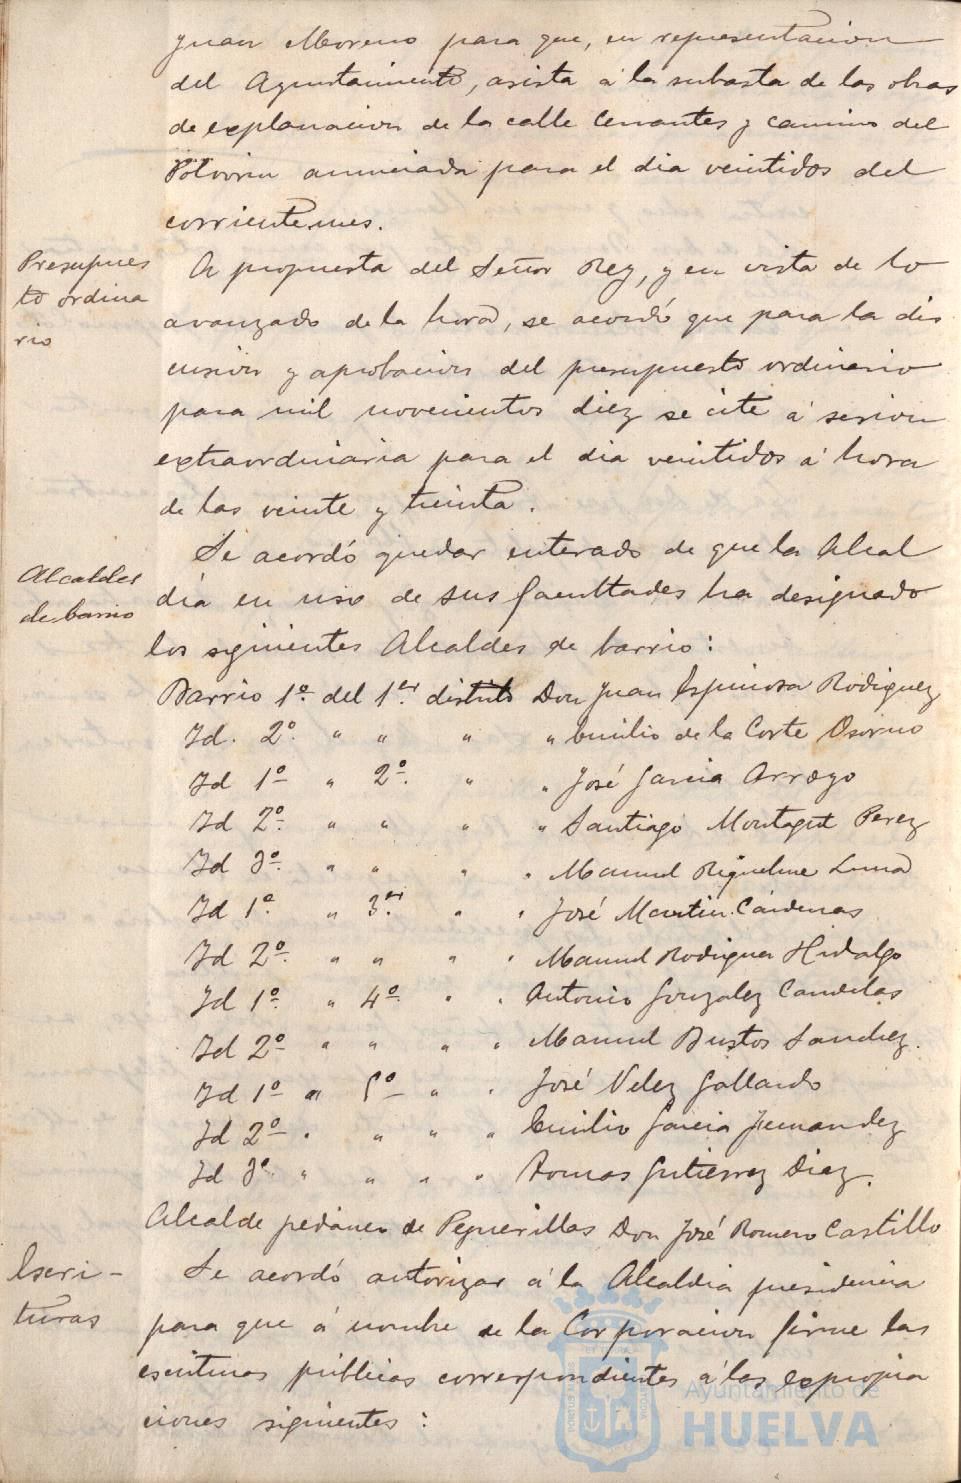 Juan Moreno para que, en representacion
del Ayuntamiento, asista á la subasta de las obras
de explanacion de la calle Cervantes y camino del
Polvorin anunciada para el dia veintidos del
corriente mes.
Presupues
to ordina
rio
A propuesta del Señor Rey, y en vista de lo
avanzado de la hora, se acordó que para la dis
cusion y aprobacion del presupuesto ordinario
para mil novecientos diez se cite á sesion
extraordinaria para el dia veintidos á hora
de las veinte y treinta.
Alcaldes
de barrio
Se acordó quedar enterado de que la Alcal
dia en uso de sus facultades ha designado
los siguientes Alcaldes de barrio:
Barrio 1º del 1er distrito Don Juan Espinosa Rodriguez
Id. 2º " " " " Emilio de la Corte Osorno
Id 1º " 2º " " José Garcia Arroyo
Id 2º " " " " Santiago Montagut Perez
Id 3º " " " " Manuel Riquelme Luna
Id 1º " 3er " " José Martin Cárdenas
Id 2º " " " " Manuel Rodriguez Hidalgo
Id 1º " 4º " " Antonio Gonzalez Candelas
Id 2º " " " " Manuel Bustos Sanchez.
Id 1º " 5º " " José Velez Gallardo
Id 2º " " " " Emilio Garcia Fernandez
Id 3º " " " " Tomas Gutierrez Diaz.
Alcalde pedáneo de Peguerillas Don José Romero Castillo
Escri-
turas
Se acordó autorizar á la Alcaldia presidencia
para que á nombre de la Corporacion firme las
escrituras públicas correspondientes á las expropia
ciones siguientes:
Ayuntamiento de
HUELVA